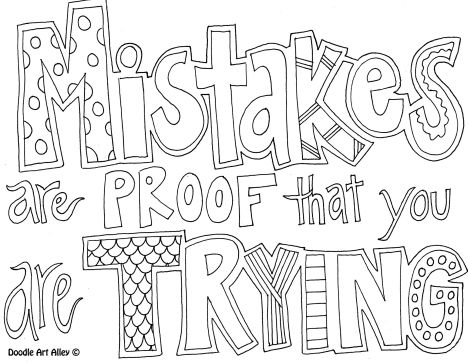 MiStakes
are PROOF that you
are TRYING
Doodle Art Alley ©